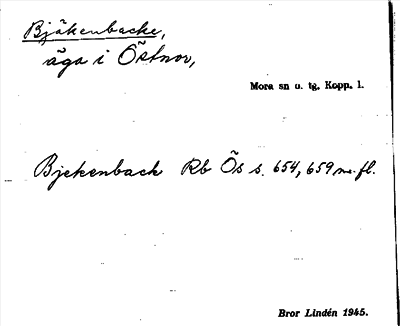 Bjäkenbacke,
äga i Östnor,
Mora sn u. tg. Kopp. l.
Bjekenback Rb Ös s. 654, 659 m. fl.
Bror Lindén 1945.